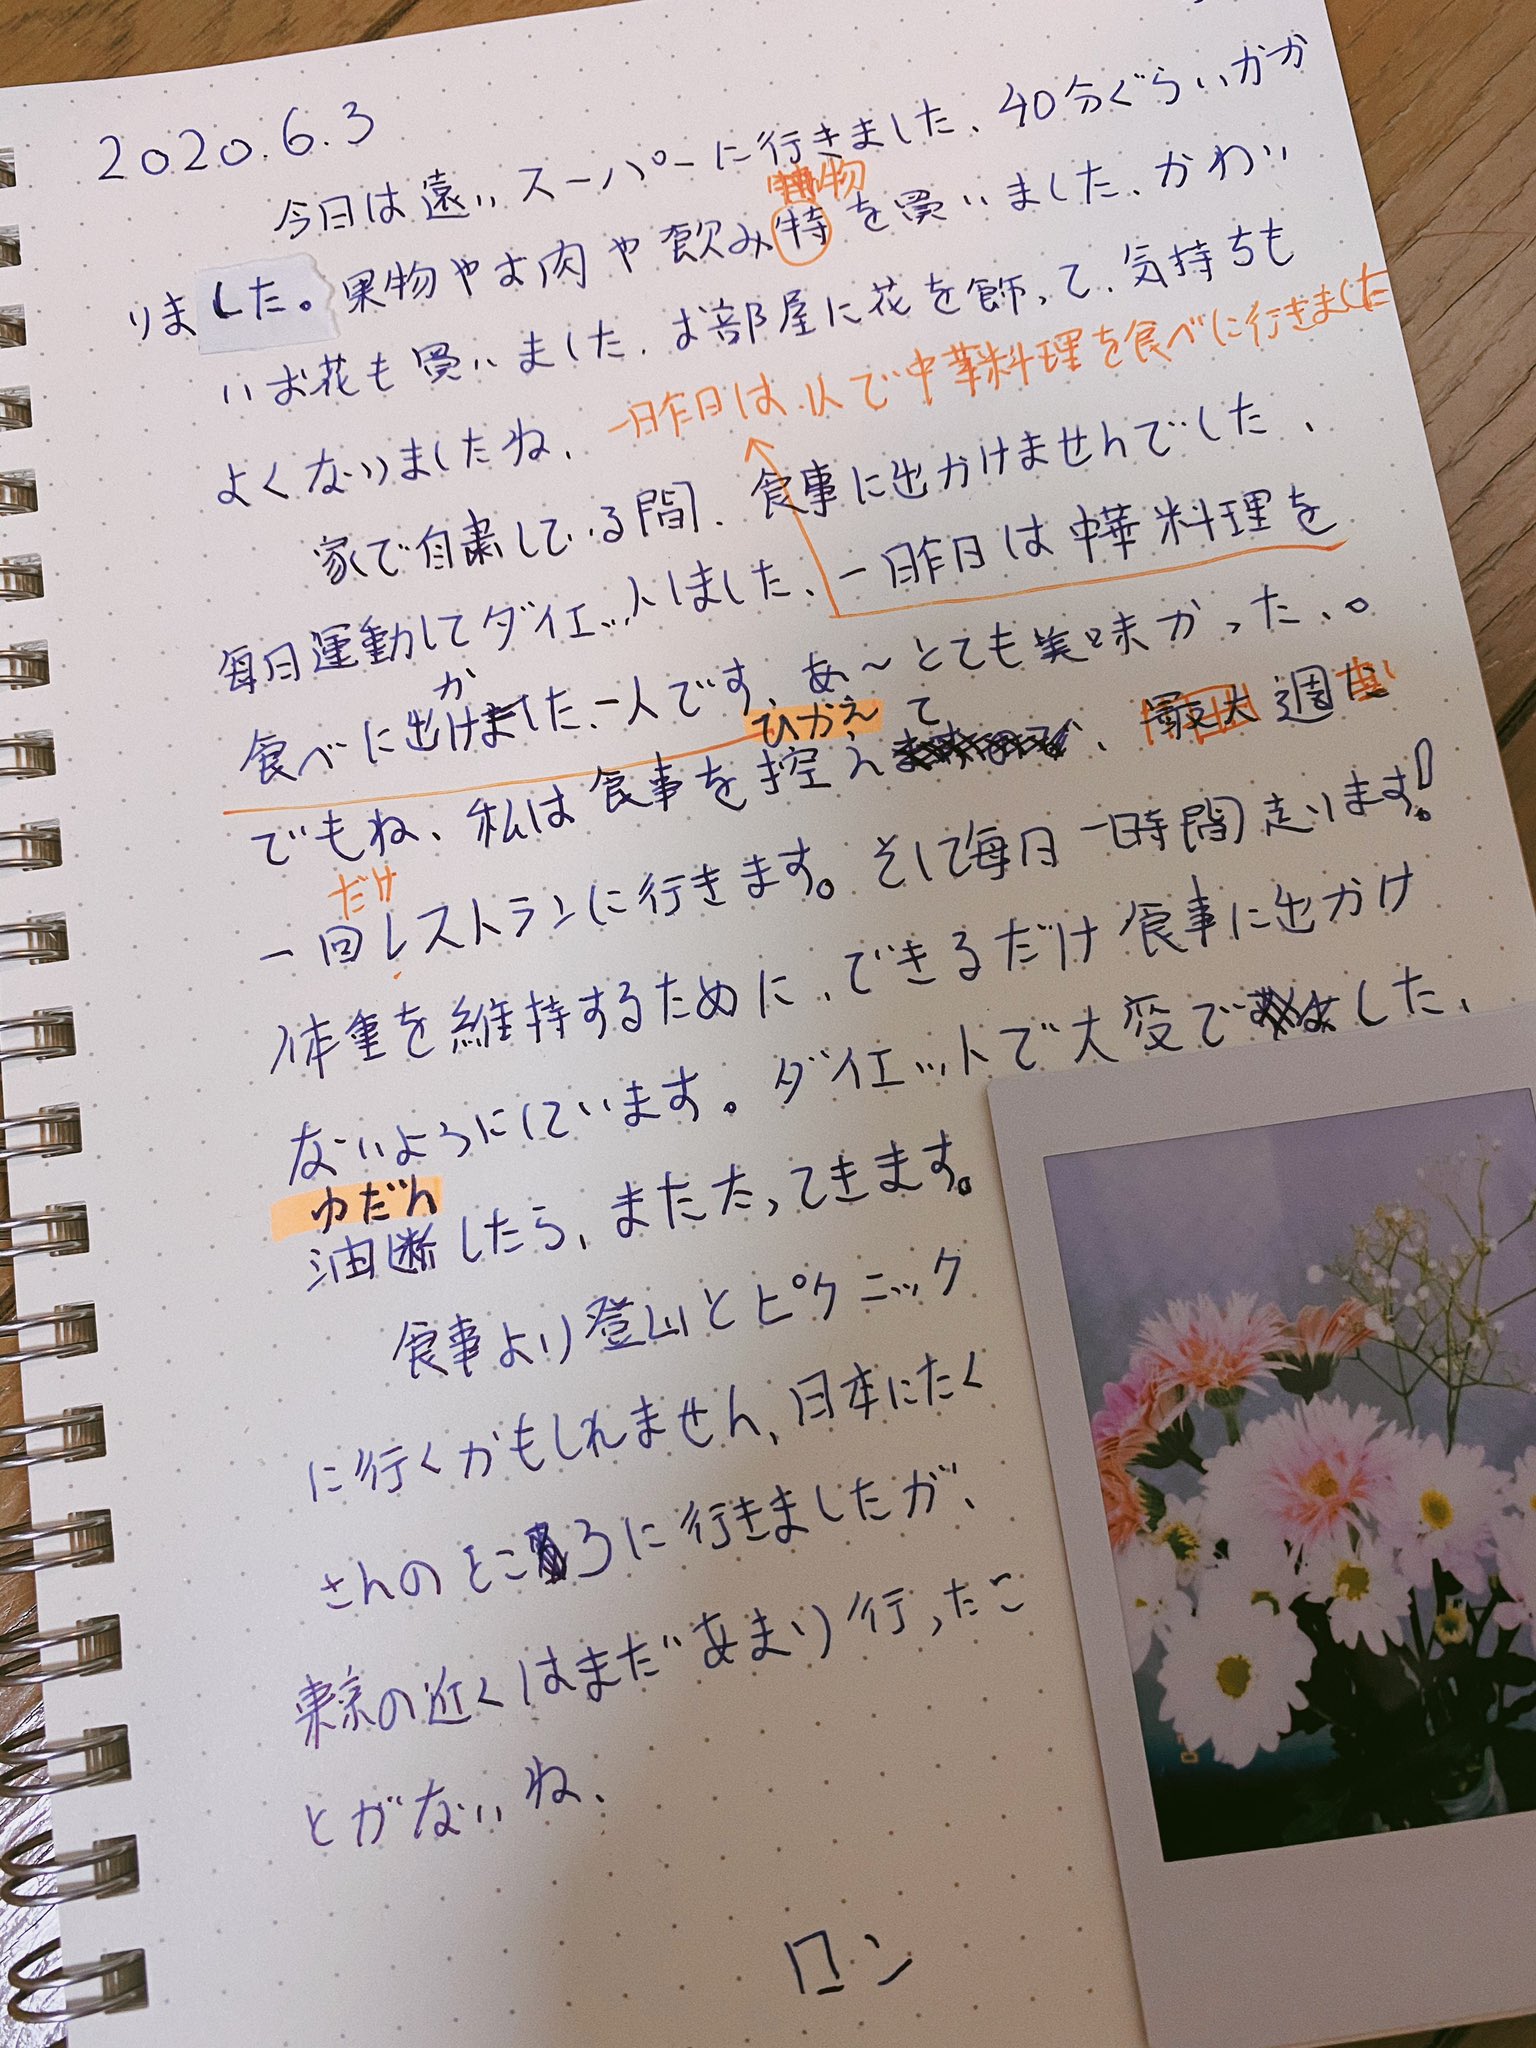 2020.6.3
今日は遠いスーパーに行きました、40分ぐらいかか
りました。果物やお肉や飲み特を買いました、かわい
物
いお花も買いました、お部屋に花を飾って、気持ちも
よくなりましたね、
一昨日は一人で中華料理を食べに行きました
家で自粛している間、食事に出かけませんでした、
毎日運動してダイエットしました、一昨日は中華料理を
食べに出かけました、一人です、あ〜とても美味かった、。
ひかえ て
でもね、私は食事を控え、最大週
一回レストランに行きます。そして毎日一時間走ります!
だけ
体重を維持するために、できるだけ食事に出かけ
ないようにしています。ダイエットで大変でした、
ゆだん
油断したら、またたってきます。
食事より登山とピクニック
に行くかもしれません、日本にたく
さんのところに行きましたが、
東京の近くはまだあまり行ったこ
とがないね、
ロン